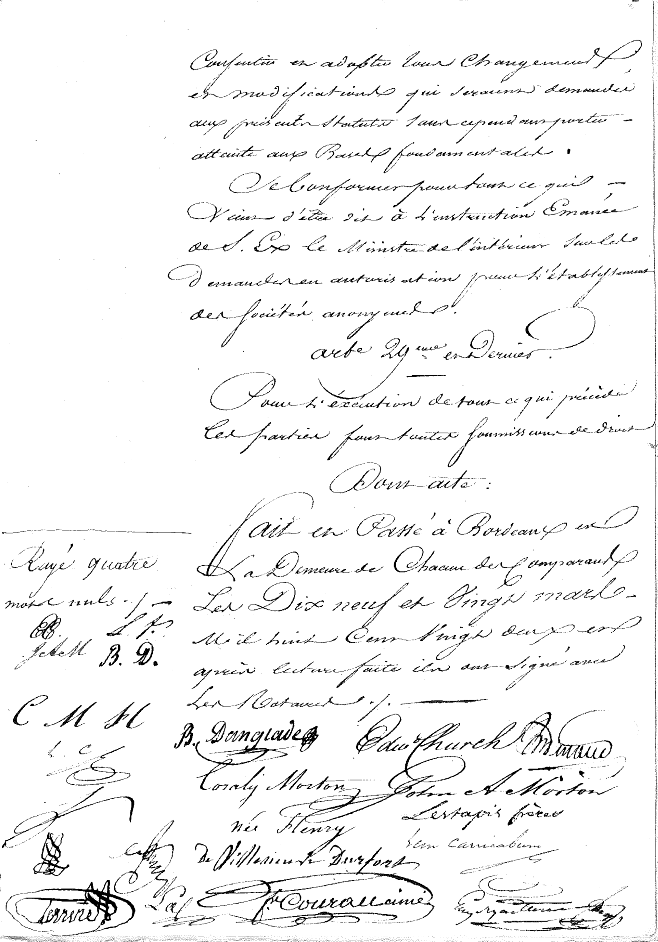 Consentir et adopter tous changements
et modifications qui seraient demandés
aux présents statuts sans cependant porter
atteinte aux Bases fondamentales.
Se Conformer pour tout ce qui
Vient d'être dit à l'instruction Emanée
de S. Ex le Ministre de l'intérieur sur les
Demandes en autorisation pour l'établissement
des Sociétés anonymes.
arte 29eme et Dernier.
Pour l'éxécution de tout ce qui précède
Les parties font toutes soumissions de droit
Dont acte:
Fait et Passé à Bordeaux en
La Demeure de Chacun des Comparants
Les Dix neuf et Vingt mars
Mil huit Cent Vingt deux et
après lecture faite ils ont signé avec
Les Notaires ./.
Rayé quatre
mots nuls ./.
J A M B. D.
C M H
B. Danglade Edwd Church
Coraly Morton John A Morton
née Fleury Lestapis frères
De Villesieur Durfort
Ferrière Pr Courau ainé